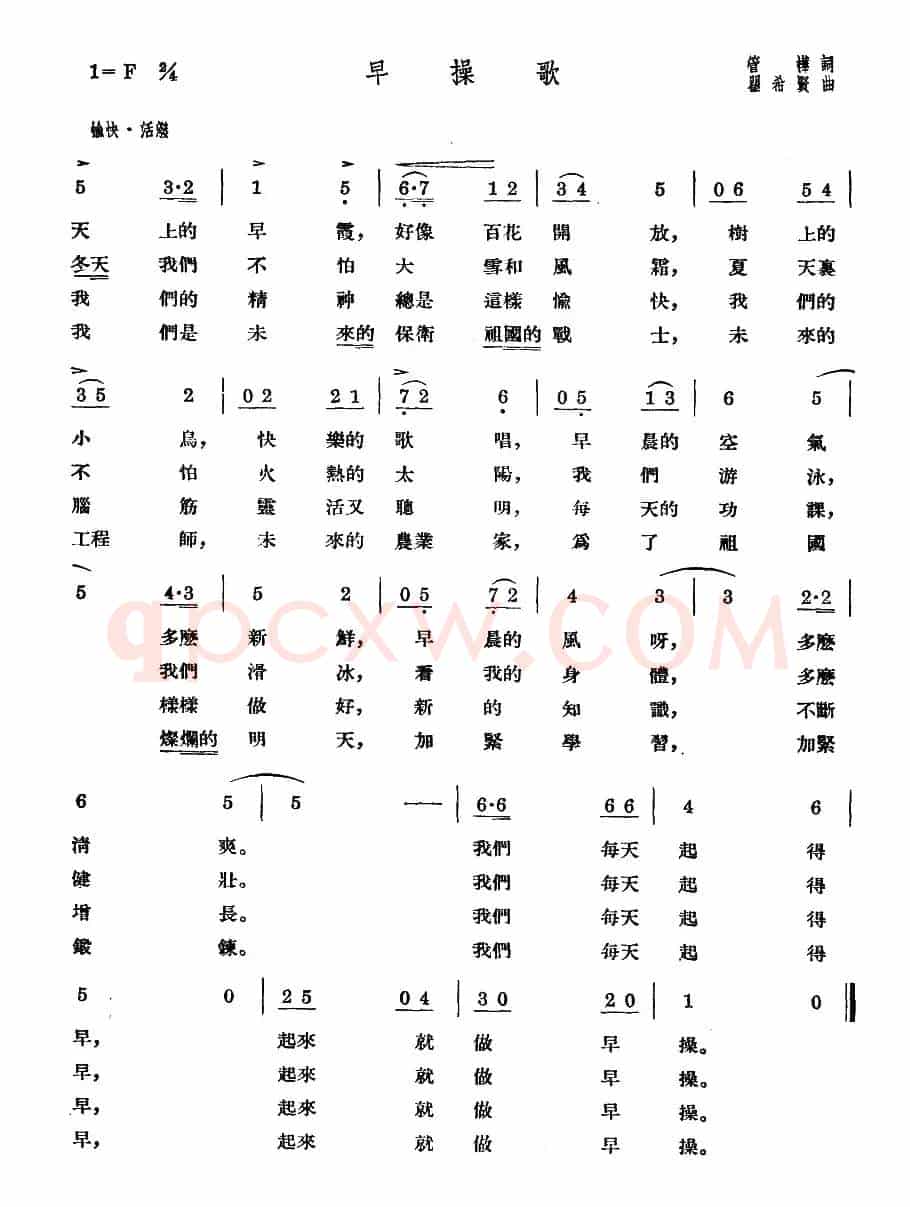 1=F 2/4 早操歌 管樺詞
瞿希賢曲
愉快·活潑
5 3·2 | 1 5 | 6·7 1 2 | 3 4 5 | 0 6 5 4 |
天 上的 早 霞, 好像 百花 開 放, 樹 上的
冬天 我們 不 怕 大 雪和 風 霜, 夏 天裏
我 們的 精 神 總是 這樣 愉 快, 我 們的
我 們是 未 來的 保衛 祖國的 戰 士, 未 來的
3 5 2 | 0 2 2 1 | 7 2 6 | 0 5 1 3 | 6 5 |
小 鳥, 快 樂的 歌 唱, 早 晨的 空 氣
不 怕 火 熱的 太 陽, 我 們 游 泳,
腦 筋 靈 活又 聰 明, 每 天的 功 課,
工程 師, 未 來的 農業 家, 爲 了 祖 國
5 4·3 | 5 2 | 0 5 7 2 | 4 3 | 3 2·2 |
多麽 新 鮮, 早 晨的 風 呀, 多麽
我們 滑 冰, 看 我的 身 體, 多麽
樣樣 做 好, 新 的 知 識, 不斷
燦爛的 明 天, 加 緊 學 習, 加緊
6 5 | 5 — | 6·6 6 6 | 4 6 |
清 爽。 我們 每天 起 得
健 壯。 我們 每天 起 得
增 長。 我們 每天 起 得
鍛 鍊。 我們 每天 起 得
5 0 | 2 5 0 4 | 3 0 2 0 | 1 0 ‖
早, 起來 就 做 早 操。
早, 起來 就 做 早 操。
早, 起來 就 做 早 操。
早, 起來 就 做 早 操。
qpcxw.COM